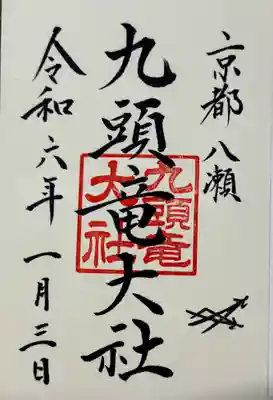 京都 八瀬
九頭竜大社
九頭竜
大社
令和六年 一月三日